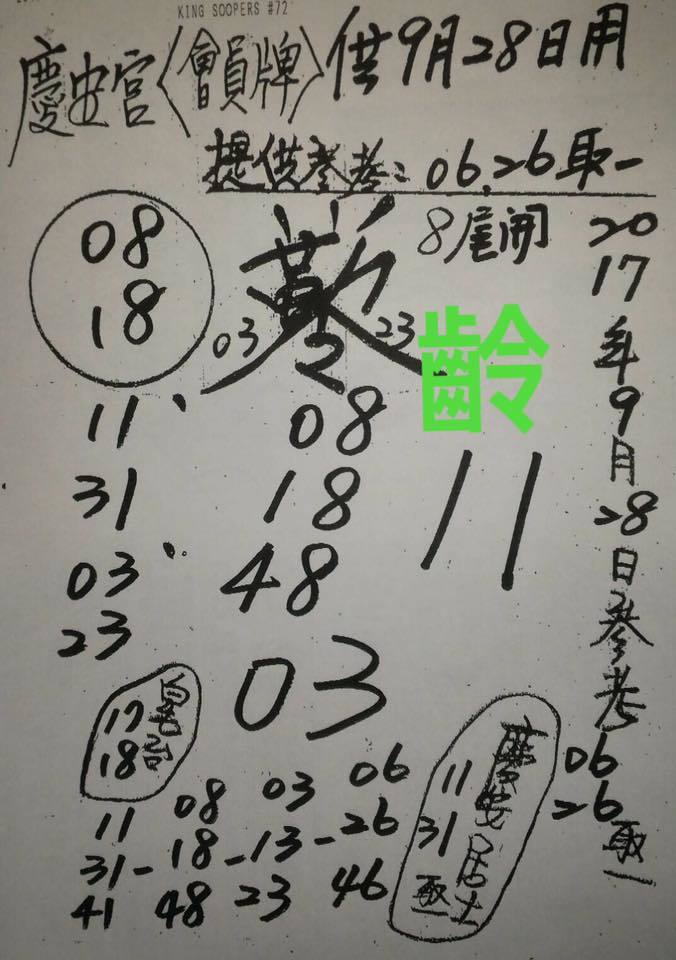 KING SOOPERS #72
慶安宮〈會員牌〉供9月28日用
提供參考：06,26取一
8尾開
08
18
03 23
齡
11
31
03
23
08
18
48
11
03
2017年9月28日參考
06
26
取一
17
18
11 08 03 06
31-18-13-26
41 48 23 46
慶安居士
11
31
取一